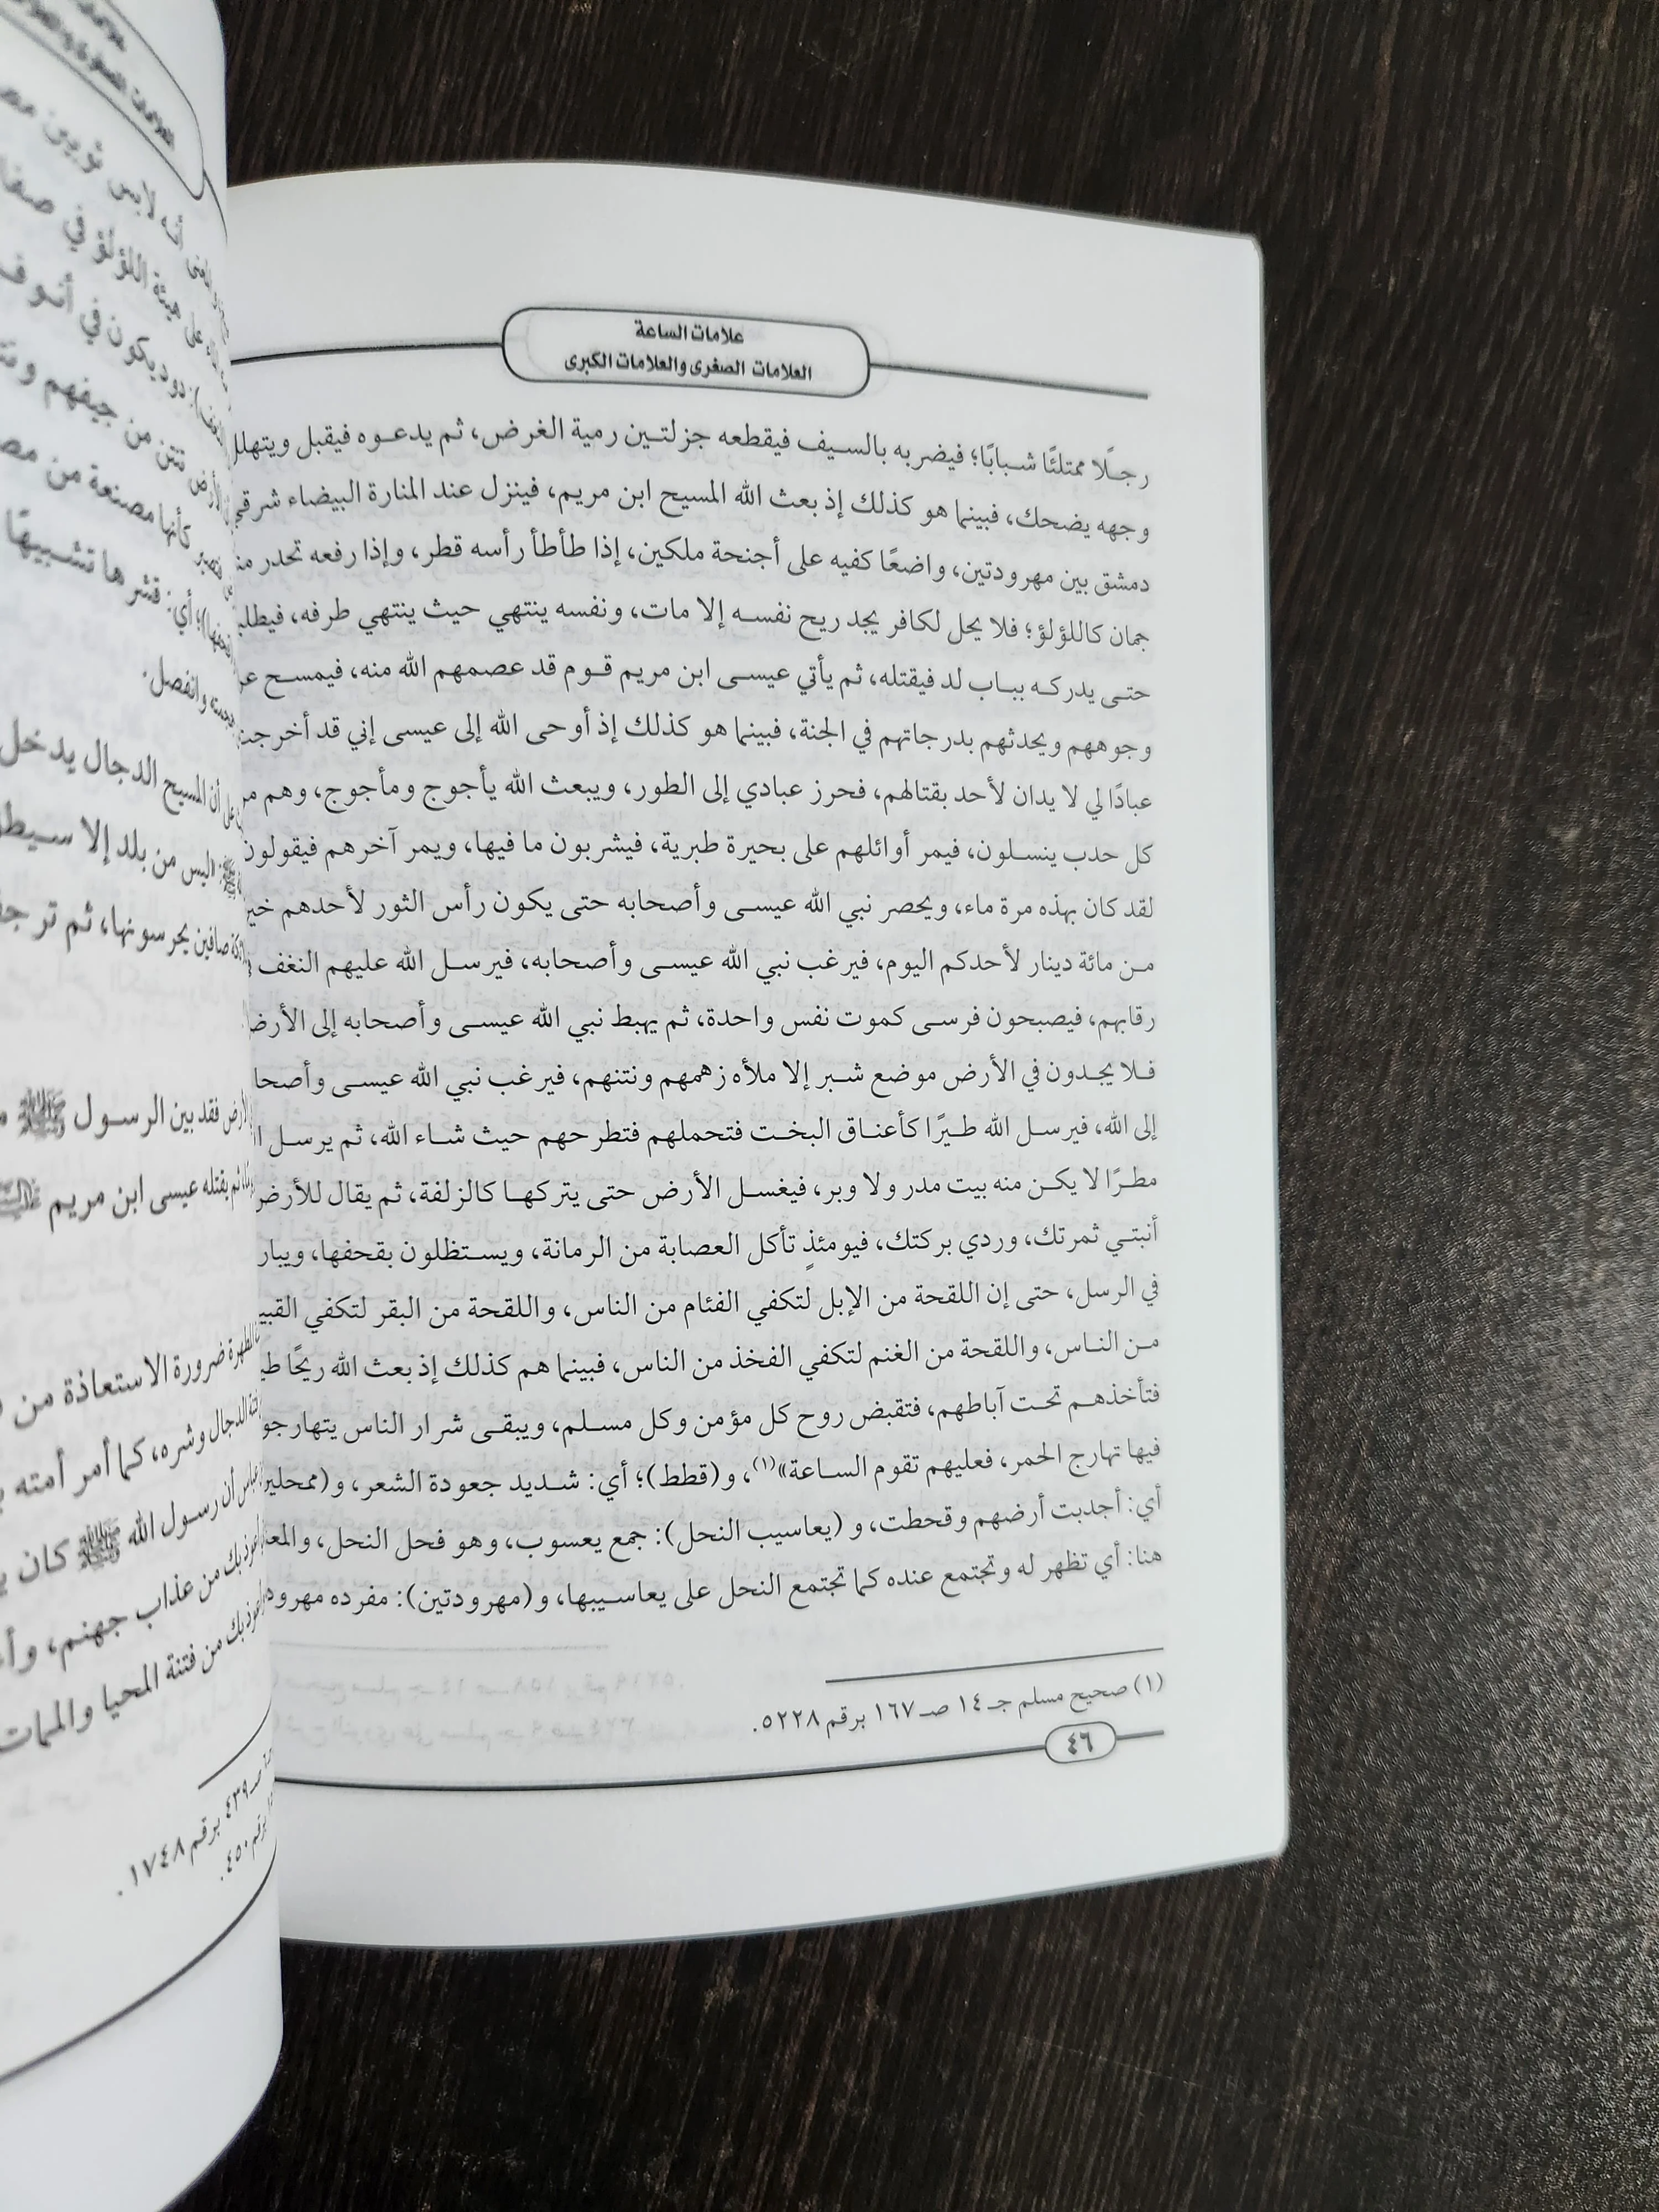 علامات الساعة
العلامات الصغرى والعلامات الكبرى
رجلًا ممتلئًا شبابًا؛ فيضربه بالسيف فيقطعه جزلتين رمية الغرض، ثم يدعوه فيقبل ويتهلل
وجهه يضحك، فبينما هو كذلك إذ بعث الله المسيح ابن مريم، فينزل عند المنارة البيضاء شرقي
دمشق بين مهرودتين، واضعًا كفيه على أجنحة ملكين، إذا طأطأ رأسه قطر، وإذا رفعه تحدر
جمان كاللؤلؤ؛ فلا يحل لكافر يجد ريح نفسه إلا مات، ونفسه ينتهي حيث ينتهي طرفه،
حتى يدركه بباب لد فيقتله، ثم يأتي عيسى ابن مريم قوم قد عصمهم الله منه، فيمسح
وجوههم ويحدثهم بدرجاتهم في الجنة، فبينما هو كذلك إذ أوحى الله إلى عيسى إني قد
عبادًا لي لا يدان لأحد بقتالهم، فحرز عبادي إلى الطور، ويبعث الله يأجوج ومأجوج، وهم
كل حدب ينسلون، فيمر أوائلهم على بحيرة طبرية، فيشربون ما فيها، ويمر آخرهم فيقولون
لقد كان بهذه مرة ماء، ويحصر نبي الله عيسى وأصحابه حتى يكون رأس الثور لأحدهم
من مائة دينار لأحدكم اليوم، فيرغب نبي الله عيسى وأصحابه، فيرسل الله عليهم النغف
رقابهم، فيصبحون فرسى كموت نفس واحدة، ثم يهبط نبي الله عيسى وأصحابه إلى الأرض
فلا يجدون في الأرض موضع شبر إلا ملأه زهمهم ونتنهم، فيرغب نبي الله عيسى
إلى الله، فيرسل الله طيرًا كأعناق البخت فتحملهم فتطرحهم حيث شاء الله، ثم يرسل
مطرًا لا يكن منه بيت مدر ولا وبر، فيغسل الأرض حتى يتركها كالزلفة، ثم يقال للأرض
أنبتي ثمرتك، وردي بركتك، فيومئذٍ تأكل العصابة من الرمانة، ويستظلون بقحفها،
في الرسل، حتى إن اللقحة من الإبل لتكفي الفئام من الناس، واللقحة من البقر لتكفي
من الناس، واللقحة من الغنم لتكفي الفخذ من الناس، فبينما هم كذلك إذ بعث الله ريحًا
فتأخذهم تحت آباطهم، فتقبض روح كل مؤمن وكل مسلم، ويبقى شرار الناس
فيها تهارج الحمر، فعليهم تقوم الساعة»(١)، و(قطط)؛ أي: شديد جعودة الشعر،
أي: أجدبت أرضهم وقحطت، و (يعاسيب النحل): جمع يعسوب، وهو فحل النحل،
هنا: أي تظهر له وتجتمع عنده كما تجتمع النحل على يعاسيبها، و(مهرودتين): مفرده
(١) صحيح مسلم جـ ١٤ صـ ١٦٧ برقم ٥٢٢٨.
٤٦
أنه لابس ثوبين
على هيئة اللؤلؤ في
دود يكون في أنوف
تنتن من جيفهم
كأنها مصنعة من
أي: قشرها تشبيهًا
وانفصل.
أن المسيح الدجال يدخل
ليس من بلد إلا
صافين يحرسونها، ثم
فقد بين الرسول ﷺ
ثم يقتله عيسى ابن مريم
ضرورة الاستعاذة من
الدجال وشره، كما أمر أمته
أن رسول الله ﷺ كان
بك من عذاب جهنم،
بك من فتنة المحيا والممات
صـ ٤٣٩ برقم ١٧٤٨.
برقم ٤٥٠.